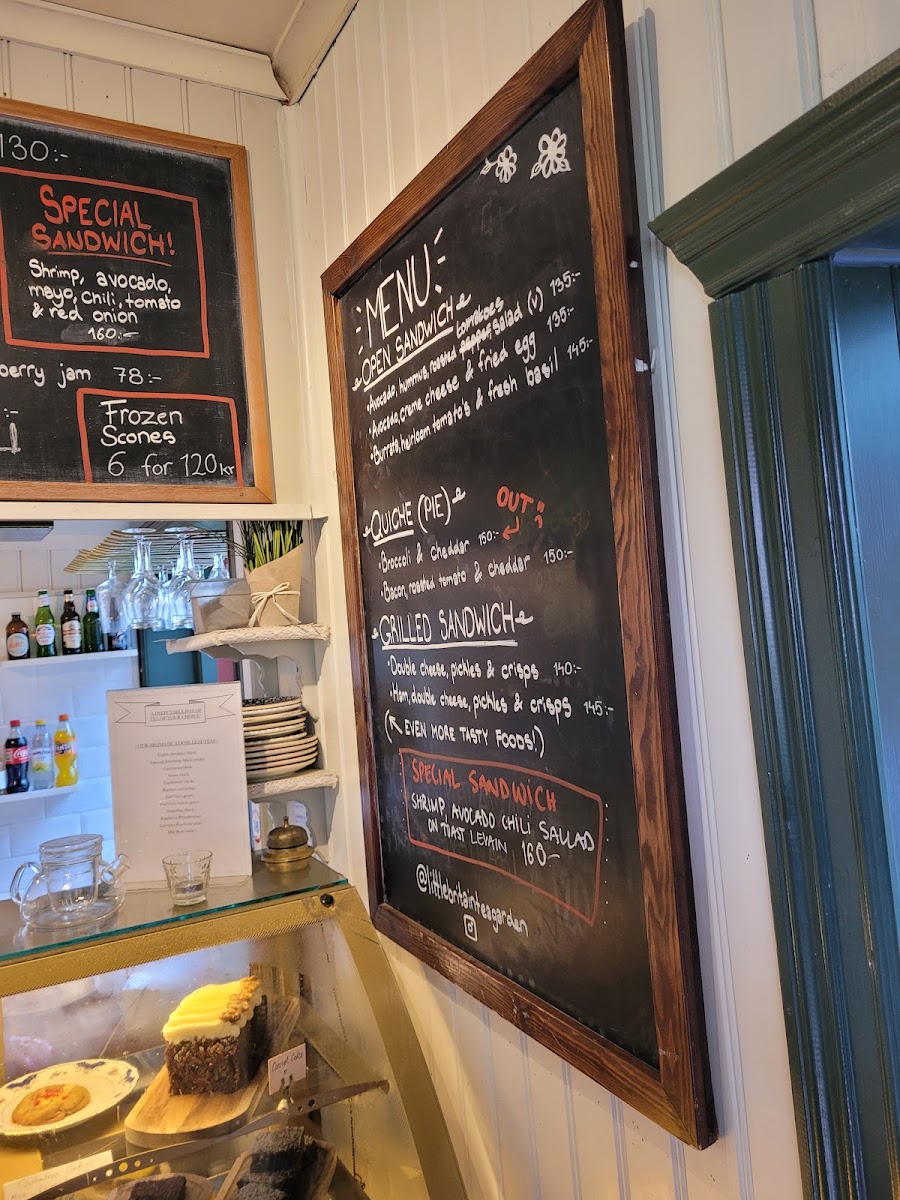 130:-
SPECIAL
SANDWICH!
Shrimp, avocado,
mayo, chili, tomato
& red onion
160:-
berry jam 78:-
Frozen
Scones
6 for 120kr
MENU
OPEN SANDWICH
tomatoes
•Avocado, hummus, roasted pepper, salad (v) 135:-
•Avocado, creme cheese & fried egg 135:-
•Burrata, heirloom tomato's & fresh basil 145:-
QUICHE (PIE)
OUT
•Broccoli & cheddar 150:-
•Bacon, roasted tomato & cheddar 150:-
GRILLED SANDWICH
•Double cheese, pickles & crisps 140:-
•Ham, double cheese, pickles & crisps 145:-
(↖ EVEN MORE TASTY FOODS!)
SPECIAL SANDWICH
SHRIMP AVOCADO CHILI SALLAD
ON TOAST LEVAIN 160-
@littlebritainteagarden
Carrot Cake